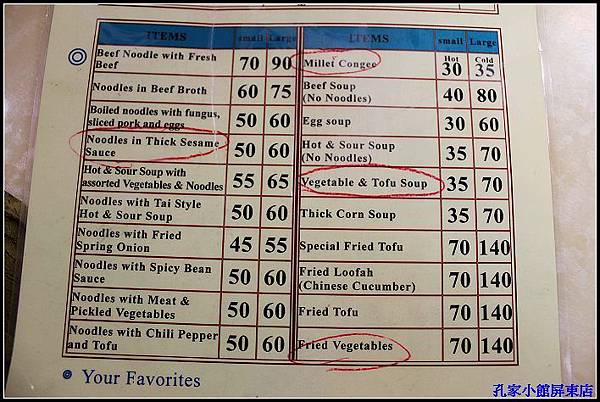 ITEMS small Large
Beef Noodle with Fresh
Beef 70 90
Noodles in Beef Broth 60 75
Boiled noodles with fungus,
sliced pork and eggs 50 60
Noodles in Thick Sesame
Sauce 50 60
Hot & Sour Soup with
assorted Vegetables & Noodles 55 65
Noodles with Tai Style
Hot & Sour Soup 50 60
Noodles with Fried
Spring Onion 45 55
Noodles with Spicy Bean
Sauce 50 60
Noodles with Meat &
Pickled Vegetables 50 60
Noodles with Chili Pepper
and Tofu 50 60
ITEMS small Large
Hot Cold
Millet Congee 30 35
Beef Soup
(No Noodles) 40 80
Egg soup 30 60
Hot & Sour Soup
(No Noodles) 35 70
Vegetable & Tofu Soup 35 70
Thick Corn Soup 35 70
Special Fried Tofu 70 140
Fried Loofah
(Chinese Cucumber) 70 140
Fried Tofu 70 140
Fried Vegetables 70 140
Your Favorites
孔家小館屏東店